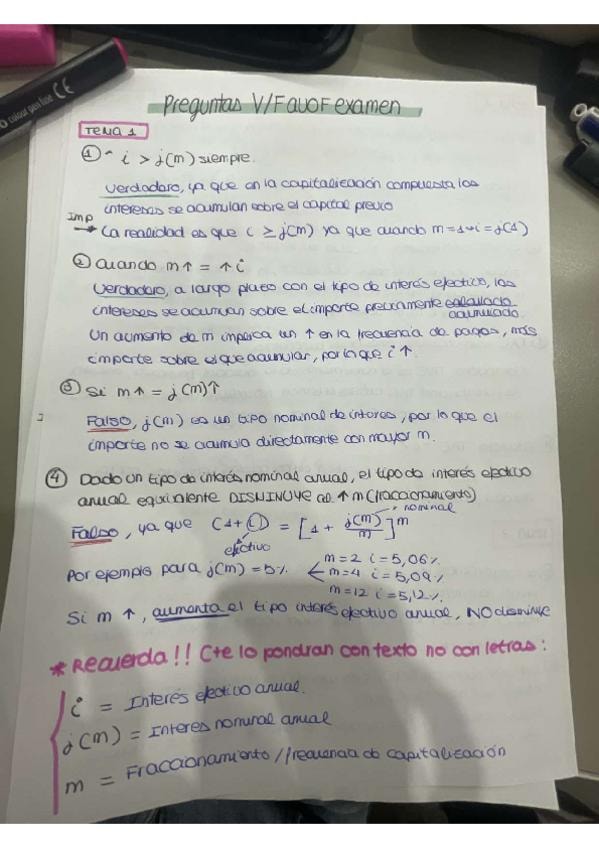 colour pen fine CE
Preguntas V/F auof examen
TEMA 1
① ^ i > j(m) siempre.
Verdadero, ya que en la capitalización compuesta los
intereses se acumulan sobre el capital previo
Imp → La realidad es que i ≥ j(m) ya que cuando m=1 → i=j(1)
② Cuando m↑ = ↑i
Verdadero, a largo plazo con el tipo de interés efectivo, los
intereses se acumulan sobre el importe previamente calculado
acumulado.
Un aumento de m implica un ↑ en la frecuencia de pagos, más
importe sobre el que acumular, por lo que i↑.
③ Si m↑ = j(m)↑
Falso, j(m) es un tipo nominal de interes, por lo que el
importe no se acumula directamente con mayor m.
④ Dado un tipo de interés nominal anual, el tipo de interés efectivo
anual equivalente DISMINUYE al ↑ m (fraccionamiento)
nominal
Falso, ya que (1+i) = [1 + j(m)/m]^m
efectivo
Por ejemplo para j(m) = 5%
m=2 i=5,06%
m=4 i=5,09%
m=12 i=5,12%.
Si m ↑, aumenta el tipo interés efectivo anual, NO disminuye
* Recuerda!! C+e lo pondran con texto no con letras:
i = Interés efectivo anual.
j(m) = Interes nominal anual
m = Fraccionamiento / frecuencia de capitalización